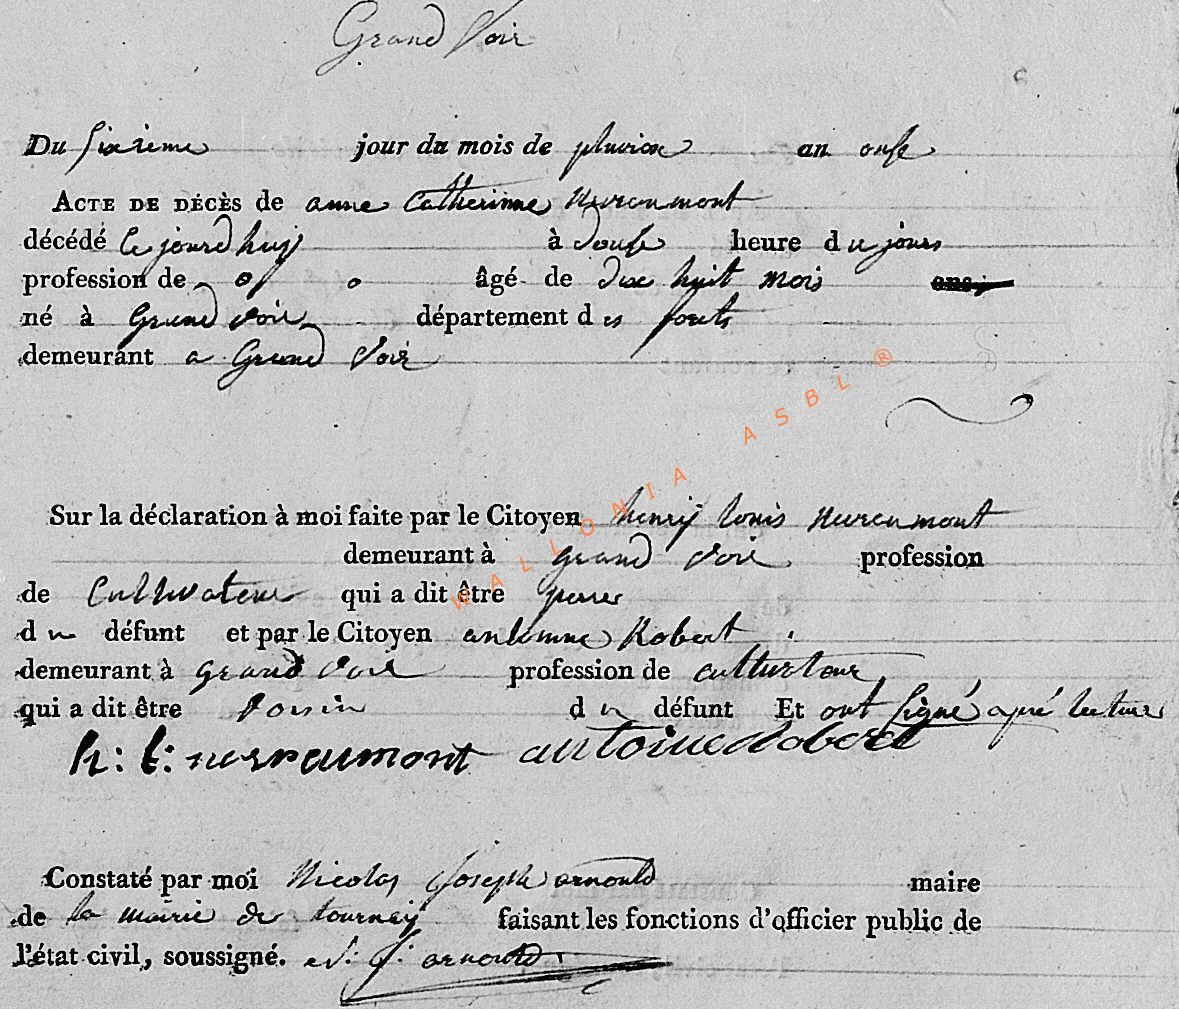 Grand Voir
Du sixième jour du mois de pluviose an onse
ACTE DE DÉCÈS de anne Catherinne nereumont
décédé ce jourd huij à douse heure du jours
profession de âgé de dix huit mois
né à Grand voir département des forets
demeurant a Grand Voir
WALLONIA ASBL ®
Sur la déclaration à moi faite par le Citoyen henrij louis nereumont
demeurant à grand voir profession
de Cultivateur qui a dit être perre
du défunt et par le Citoyen antoinne Robert
demeurant à grand voir profession de cultivateur
qui a dit être voisin du défunt Et ont signé apré lecture
h: l: nerreumont antoine Robert
Constaté par moi Nicolas Joseph arnould maire
de la mairie de tournaij faisant les fonctions d'officier public de
l'état civil, soussigné. N: J: arnould